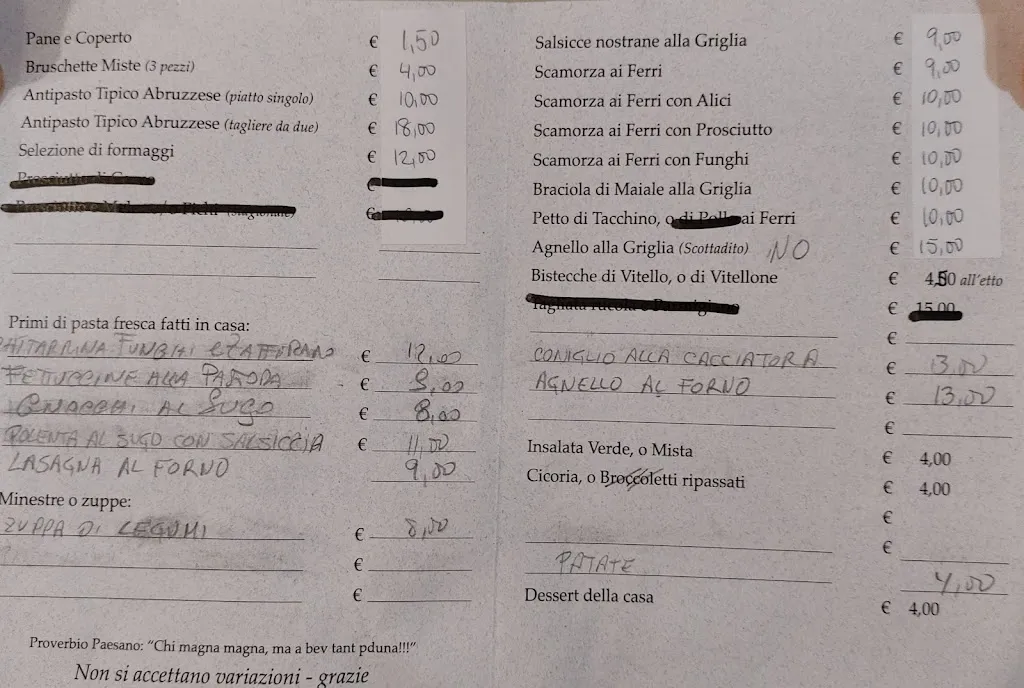 Pane e Coperto € 1,50
Bruschette Miste (3 pezzi) € 4,00
Antipasto Tipico Abruzzese (piatto singolo) € 10,00
Antipasto Tipico Abruzzese (tagliere da due) € 18,00
Selezione di formaggi € 12,00
Primi di pasta fresca fatti in casa:
CHITARRINA FUNGHI E ZAFFERANO € 12,00
FETTUCCINE ALLA € 9,00
GNOCCHI AL SUGO € 8,00
POLENTA AL SUGO CON SALSICCIA € 11,00
LASAGNA AL FORNO 9,00
Minestre o zuppe:
ZUPPA DI LEGUMI € 8,00
€
€
Proverbio Paesano: “Chi magna magna, ma a bev tant pduna!!!”
Non si accettano variazioni - grazie
Salsicce nostrane alla Griglia € 9,00
Scamorza ai Ferri € 9,00
Scamorza ai Ferri con Alici € 10,00
Scamorza ai Ferri con Prosciutto € 10,00
Scamorza ai Ferri con Funghi € 10,00
Braciola di Maiale alla Griglia € 10,00
Petto di Tacchino, o ai Ferri € 10,00
Agnello alla Griglia (Scottadito) NO € 15,00
Bistecche di Vitello, o di Vitellone € 4,50 all'etto
€ 15,00
€
CONIGLIO ALLA CACCIATORA € 13,00
AGNELLO AL FORNO € 13,00
€
Insalata Verde, o Mista € 4,00
Cicoria, o Broccoletti ripassati € 4,00
€
€
PATATE 4,00
Dessert della casa € 4,00